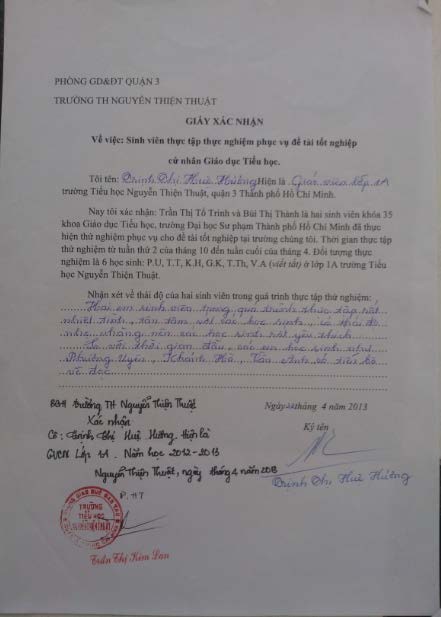 PHÒNG GD&ĐT QUẬN 3
TRƯỜNG TH NGUYỄN THIỆN THUẬT
GIẤY XÁC NHẬN
Về việc: Sinh viên thực tập thực nghiệm phục vụ đề tài tốt nghiệp
cử nhân Giáo dục Tiểu học.
Tôi tên: Trịnh Thị Huê Hương Hiện là Giáo viên lớp 1A
trường Tiểu học Nguyễn Thiện Thuật, quận 3 Thành phố Hồ Chí Minh.
Nay tôi xác nhận: Trần Thị Tố Trinh và Bùi Thị Thành là hai sinh viên khóa 35
khoa Giáo dục Tiểu học, trường Đại học Sư phạm Thành phố Hồ Chí Minh đã thực
hiện thử nghiệm phục vụ cho đề tài tốt nghiệp tại trường chúng tôi. Thời gian thực tập
thử nghiệm từ tuần thứ 2 của tháng 10 đến tuần cuối của tháng 4. Đối tượng thực
nghiệm là 6 học sinh: P.U, T.T, K.H, G.K, T.Th, V.A (viết tắt) ở lớp 1A trường Tiểu
học Nguyễn Thiện Thuật.
Nhận xét về thái độ của hai sinh viên trong quá trình thực tập thử nghiệm:
Hai em sinh viên trong quá trình thực tập rất
nhiệt tình, tận tâm với các học sinh, có thái độ
nhẹ nhàng nên các học sinh rất yêu thích.
So với thời gian đầu, các em học sinh như
Phương Uyên, Khánh Hà, Vân Anh có tiến bộ
về đọc.
BGH trường TH Nguyễn Thiện Thuật
Xác nhận
Cô: Trịnh Thị Huê Hương hiện là
GVCN Lớp 1A. Năm học 2012-2013
Nguyễn Thiện Thuật, ngày tháng 4 năm 2013
P.HT
Ngày tháng 4 năm 2013
Ký tên
Trịnh Thị Huê Hương
TRƯỜNG
TIỂU HỌC
Trần Thị Kim Lan